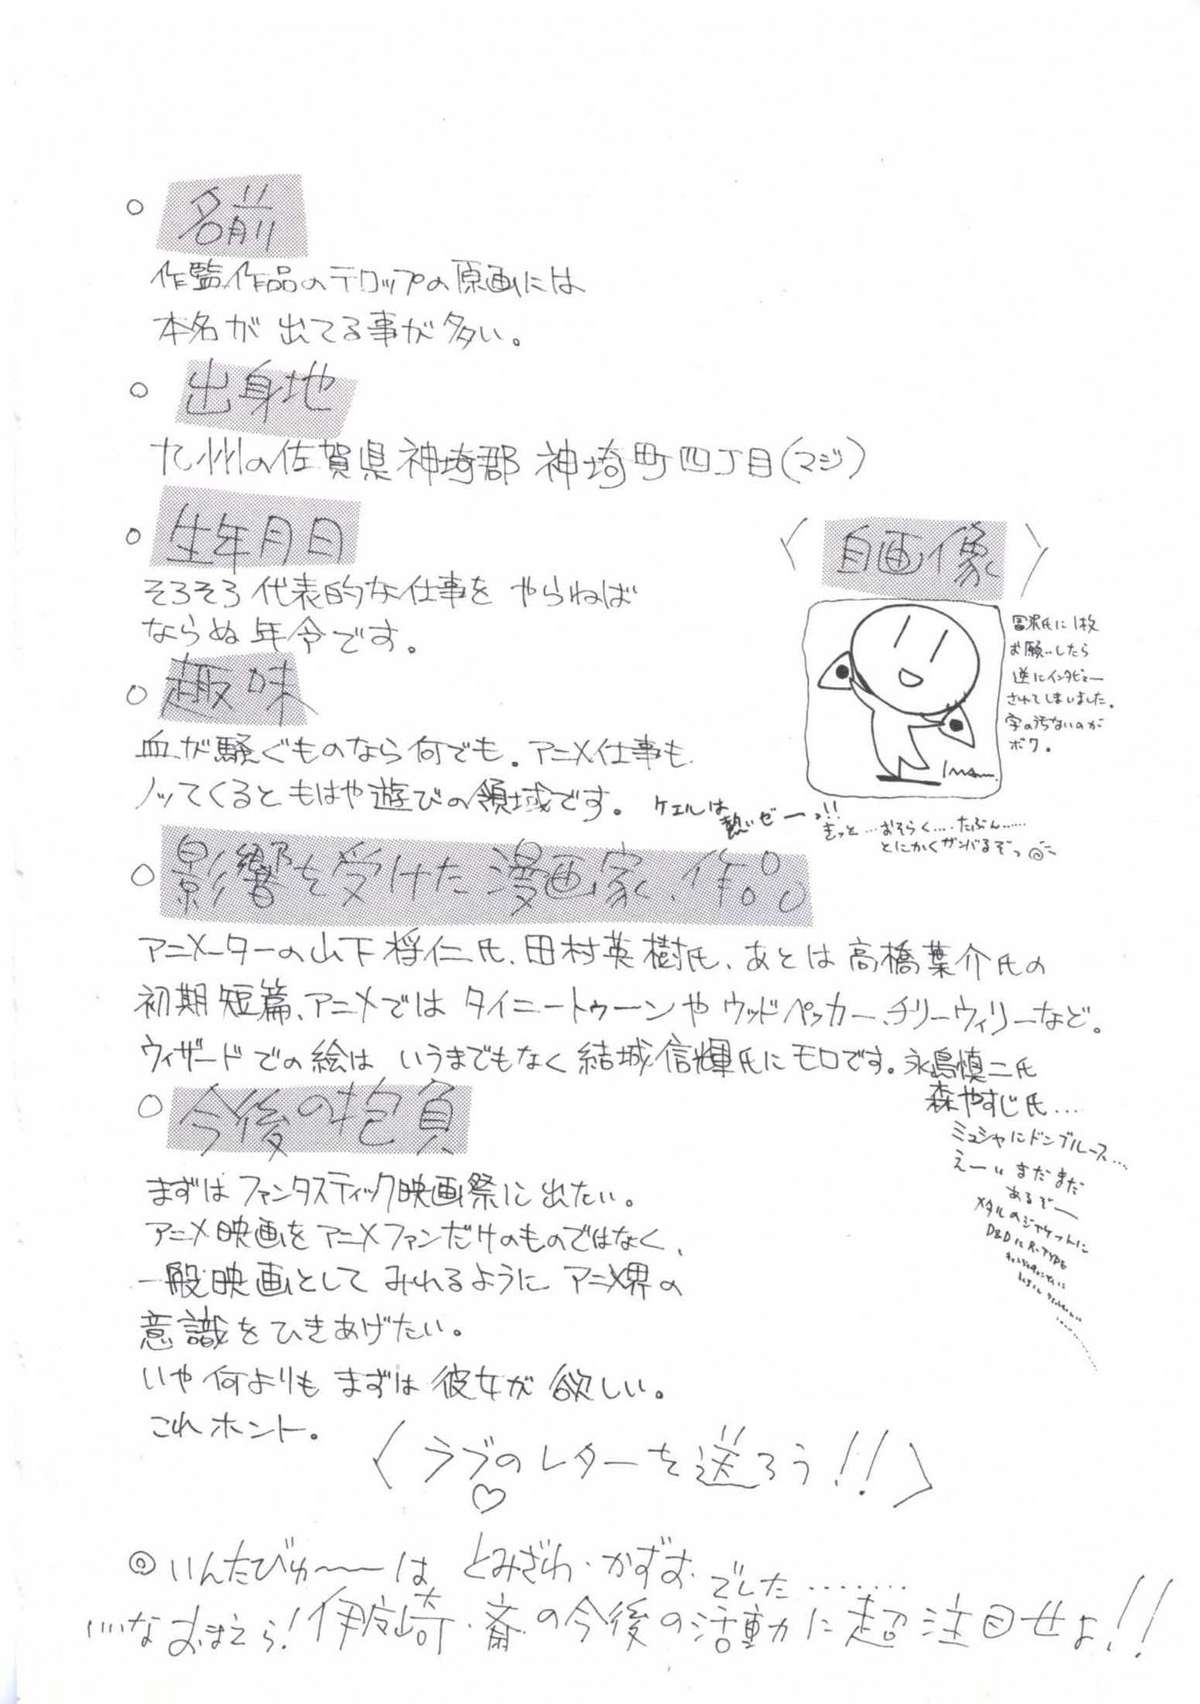 ○ 名前
作監作品のテロップの原画には
本名が出てる事が多い。
○ 出身地
九州の佐賀県神埼郡神埼町四丁目(マジ)
○ 生年月日
そろそろ代表的な仕事をやらねば
ならぬ年令です。
〈自画像〉
冨沢氏に1枚
お願いしたら
逆にインタビュー
されてしまいました。
字の汚ないのが
ボク。
○ 趣味
血が騒ぐものなら何でも。アニメ仕事も
ノッてくるともはや遊びの領域です。
ケェルは
熱いゼーっ!!
きっと…おそらく….たぶん……
とにかくガンバるぞっ
○ 影響を受けた漫画家、作品
アニメーターの山下将仁氏、田村英樹氏、あとは高橋葉介氏の
初期短篇、アニメではタイニートゥーンやウッドペッカー、チリーウィリーなど。
ウィザードでの絵はいうまでもなく結城信輝氏にモロです。永島慎二氏
森やすじ氏…
ミュシャにドンブルース…
えーい まだまだ
あるぞー
メタルのジャケットに
D&DにR・TYPE
○ 今後の抱負
まずはファンタスティック映画祭に出たい。
アニメ映画をアニメファンだけのものではなく、
一般映画としてみれるようにアニメ界の
意識をひきあげたい。
いや何よりもまずは彼女が欲しい。
これホント。
〈ラブ♡のレターを送ろう!!〉
◎いんたびゅ〜〜は とみざわ・かずお でした…….
いいなおまえら!伊庭崎・斎の今後の活動に超注目せよ!!